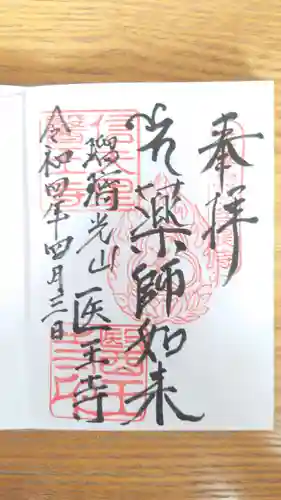 奉拝
薬師如来
瑠璃光山 医王寺
令和四年四月三日